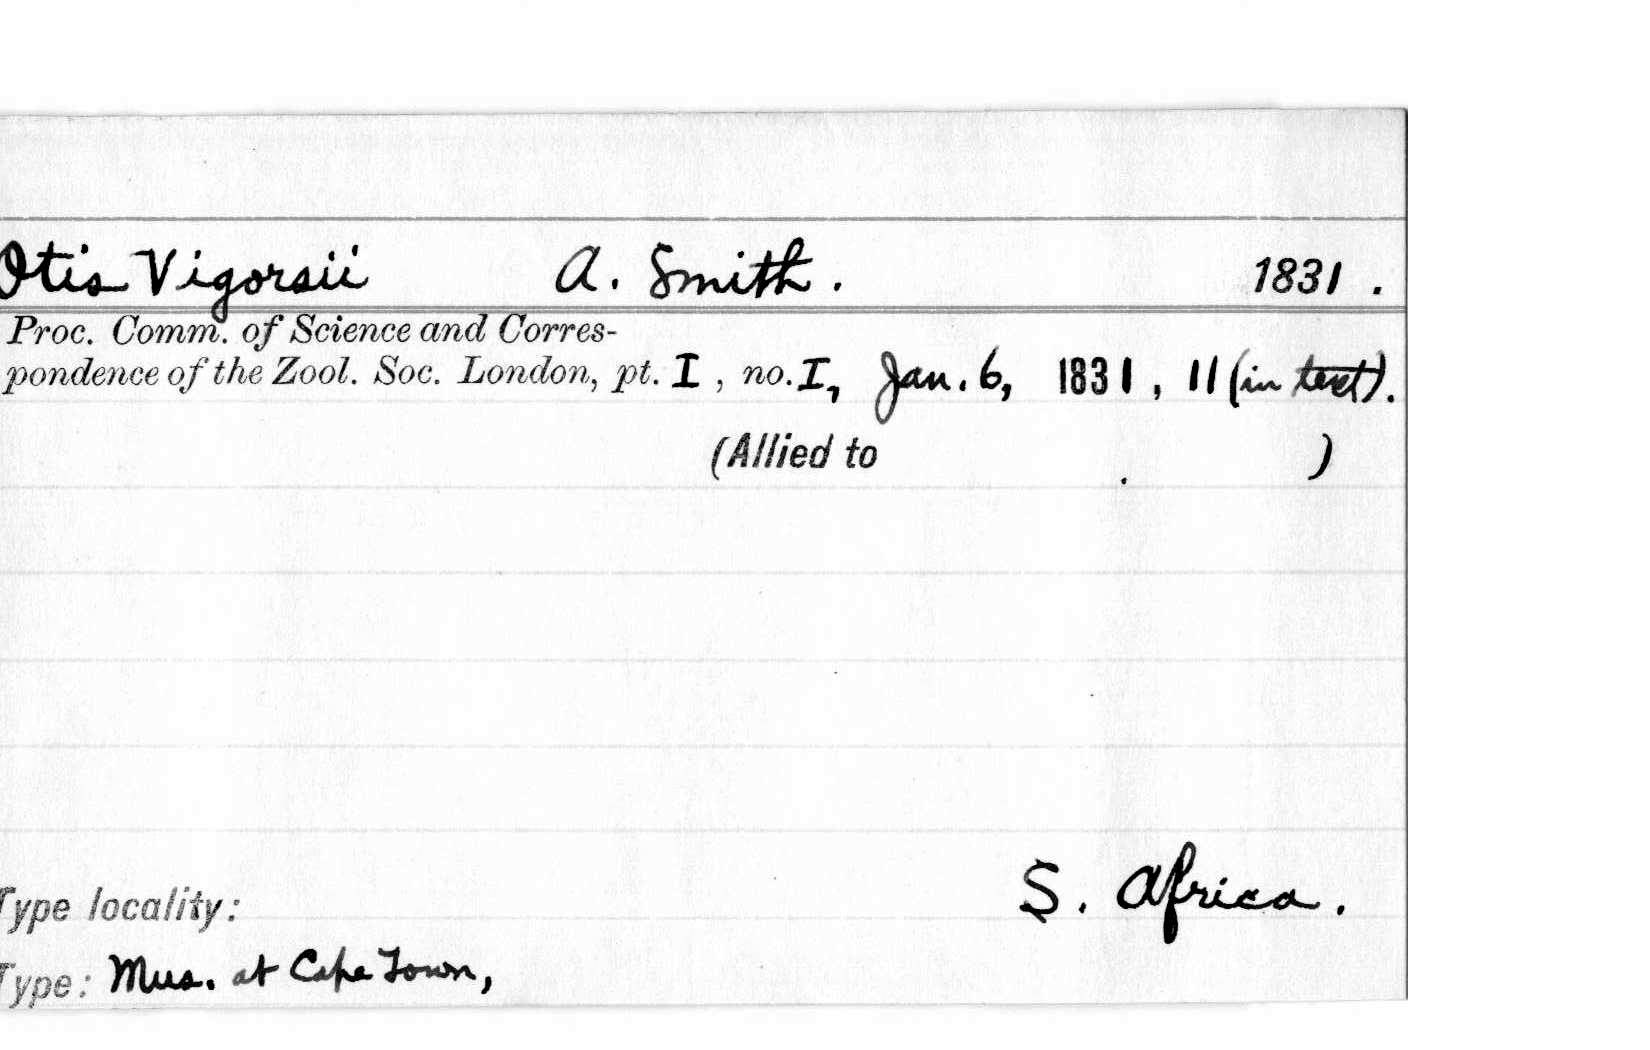 Otis Vigorsii A. Smith. 1831.
Proc. Comm. of Science and Corres-
pondence of the Zool. Soc. London, pt. I, no. I, Jan. 6, 1831, 11 (in text).
(Allied to . )
Type locality: S. Africa.
Type: Mus. at Cape Town,